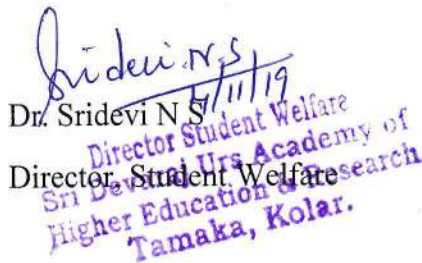 Sridevi.N.S
4/11/19
Dr. Sridevi N S
Director, Student Welfare
Director Student Welfare
Sri Devaraj Urs Academy of
Higher Education & Research
Tamaka, Kolar.